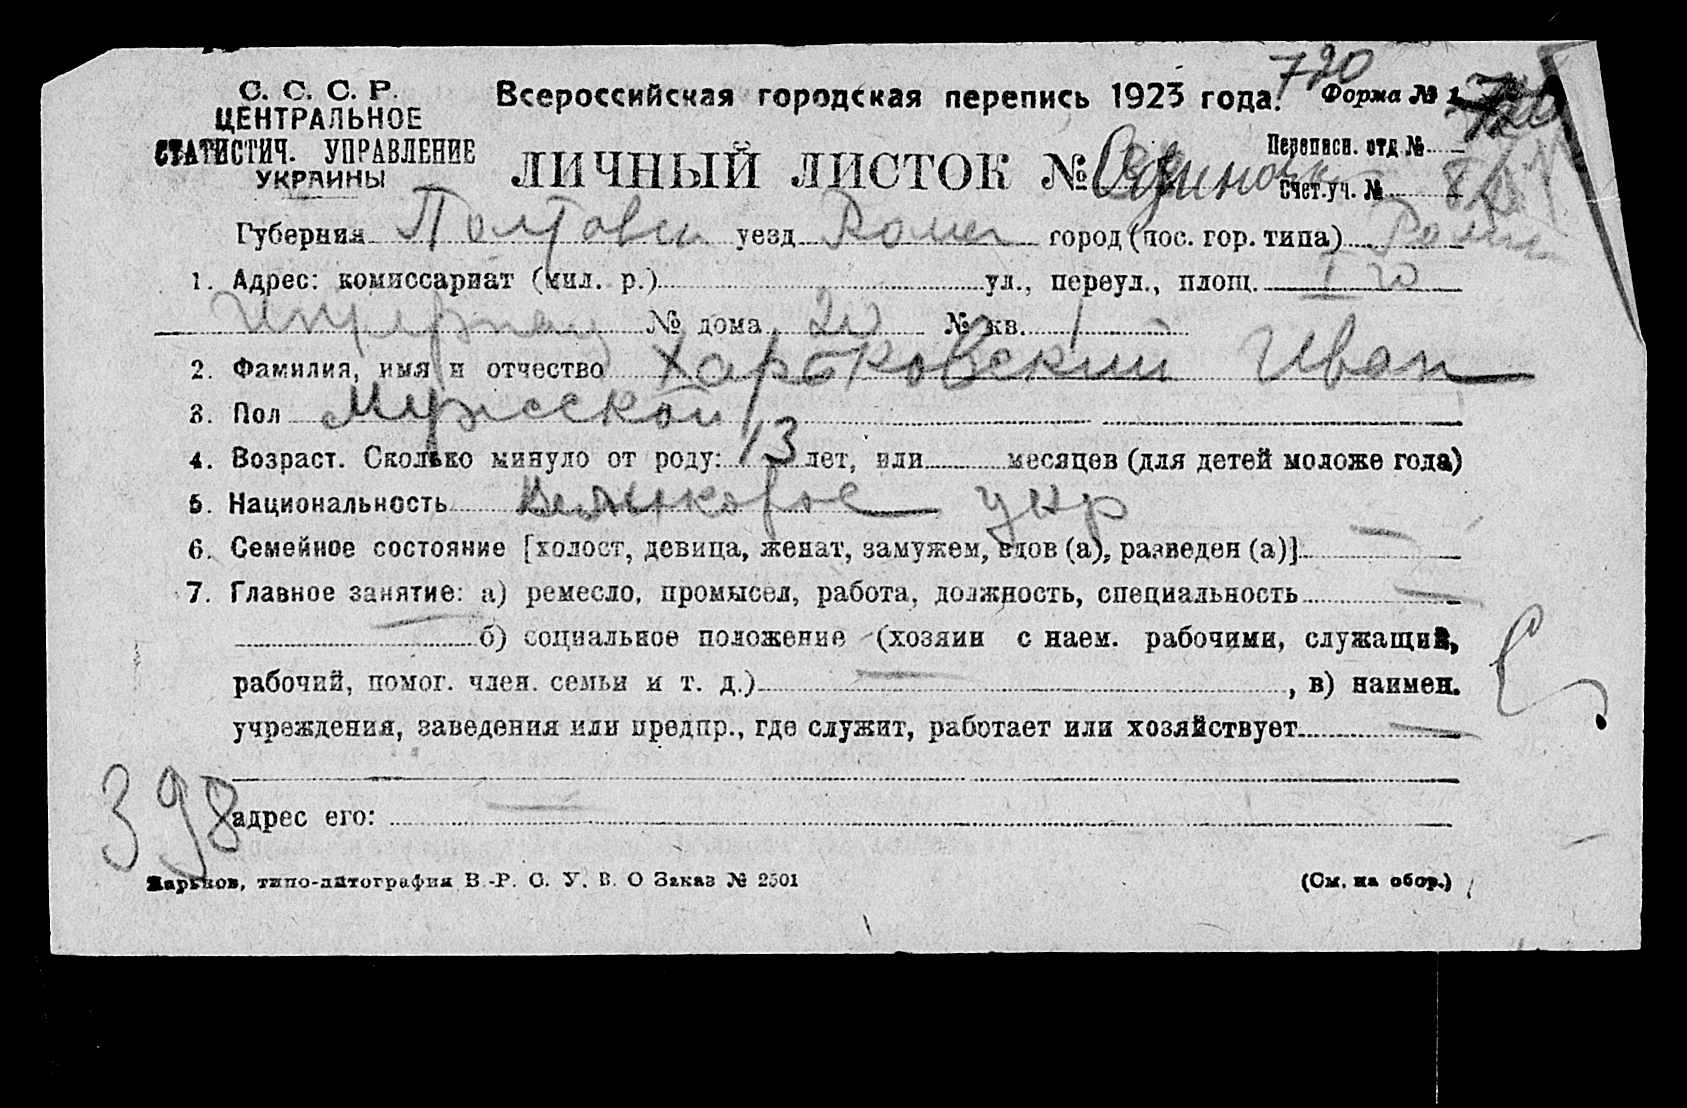 С. С. С. Р.
ЦЕНТРАЛЬНОЕ
СТАТИСТИЧ. УПРАВЛЕНИЕ
УКРАИНЫ
Всероссийская городская перепись 1923 года.
720
Форма № 1
ЛИЧНЫЙ ЛИСТОК № Одиночк
Переписн. отд №
Счет.уч. №
Губерния Полтавск уезд Ромен город (пос. гор. типа) Ромны
1. Адрес: комиссариат (мил. р.) ул., переул., площ. I го
№ дома 20 № кв. 1
2. Фамилия, имя и отчество Харьковский Иван
3. Пол Мужской
4. Возраст. Сколько минуло от роду: 13 лет, или месяцев (для детей моложе года)
5. Национальность Великорос укр
6. Семейное состояние [холост, девица, женат, замужем, вдов (а), разведен (а)] —
7. Главное занятие: а) ремесло, промысел, работа, должность, специальность —
— б) социальное положение (хозяин с наем. рабочими, служащий,
рабочий, помог. член. семьи и т. д.) — , в) наимен.
учреждения, заведения или предпр., где служит, работает или хозяйствует —
398
адрес его: —
Харьков, типо-литография В.-Р. С. У. В. О Заказ № 2501
(См. на обор.)